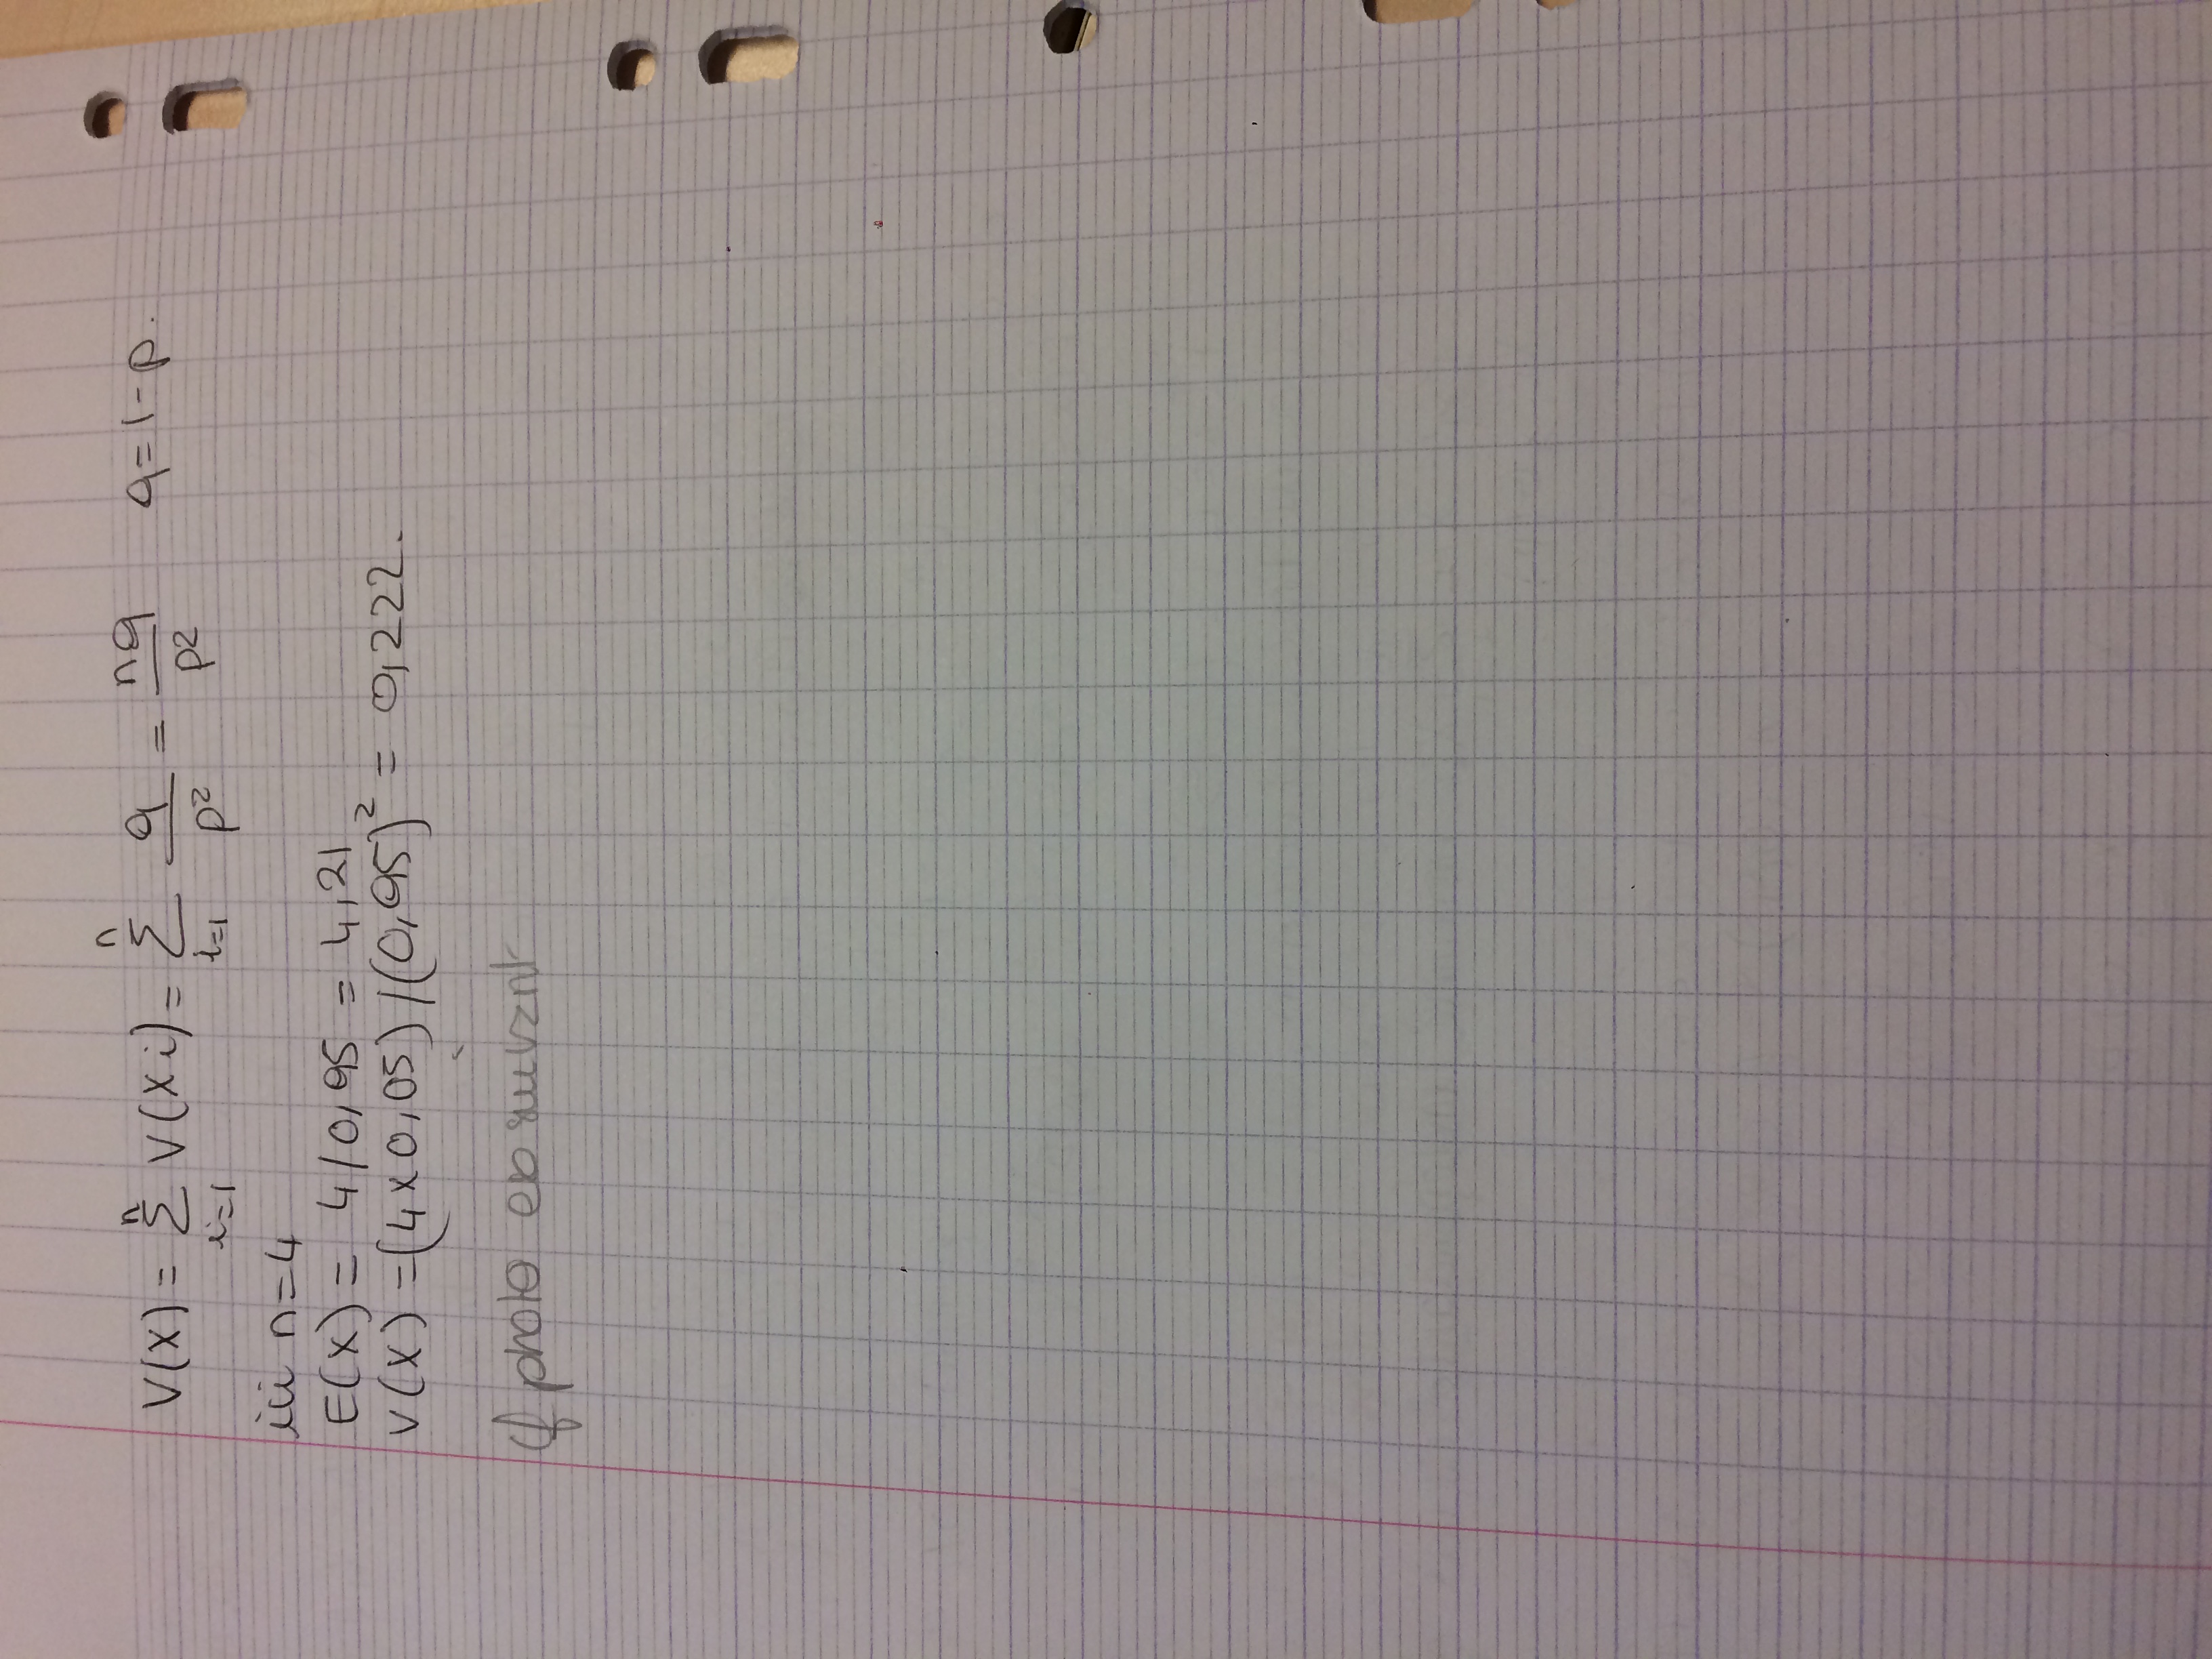 V(X) = n∑i=1 V(Xi) = n∑i=1 q/p² = nq/p² q=1-p.
ici n=4
E(X) = 4/0,95 = 4,21
V(X) = (4x0,05)/(0,95)² = 0,222.
cf photo exo suivant